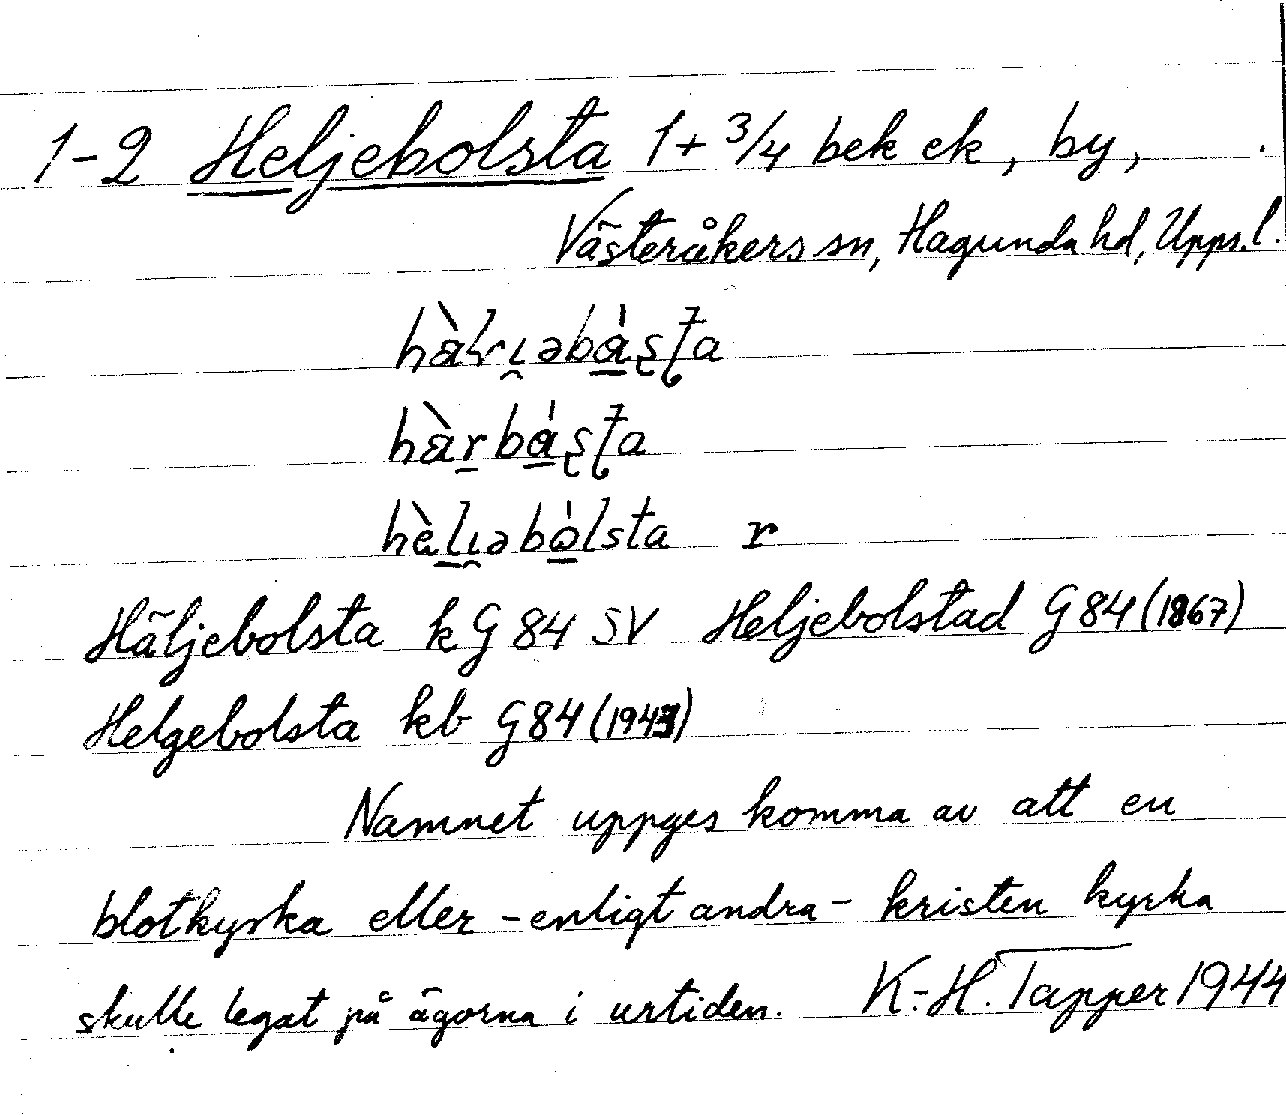 1-2 Heljebolsta 1+3/4 bek ek, by,
Västeråkers sn, Hagunda hd, Upps. l.
hèli̯əbòlsta r
Häljebolsta k G 84 SV Heljebolstad G 84 (1867)
Helgebolsta kb G 84 (1943)
Namnet uppges komma av att en
blotkyrka eller - enligt andra - kristen kyrka
skulle legat på ägorna i urtiden. K.-H. Tapper 1944